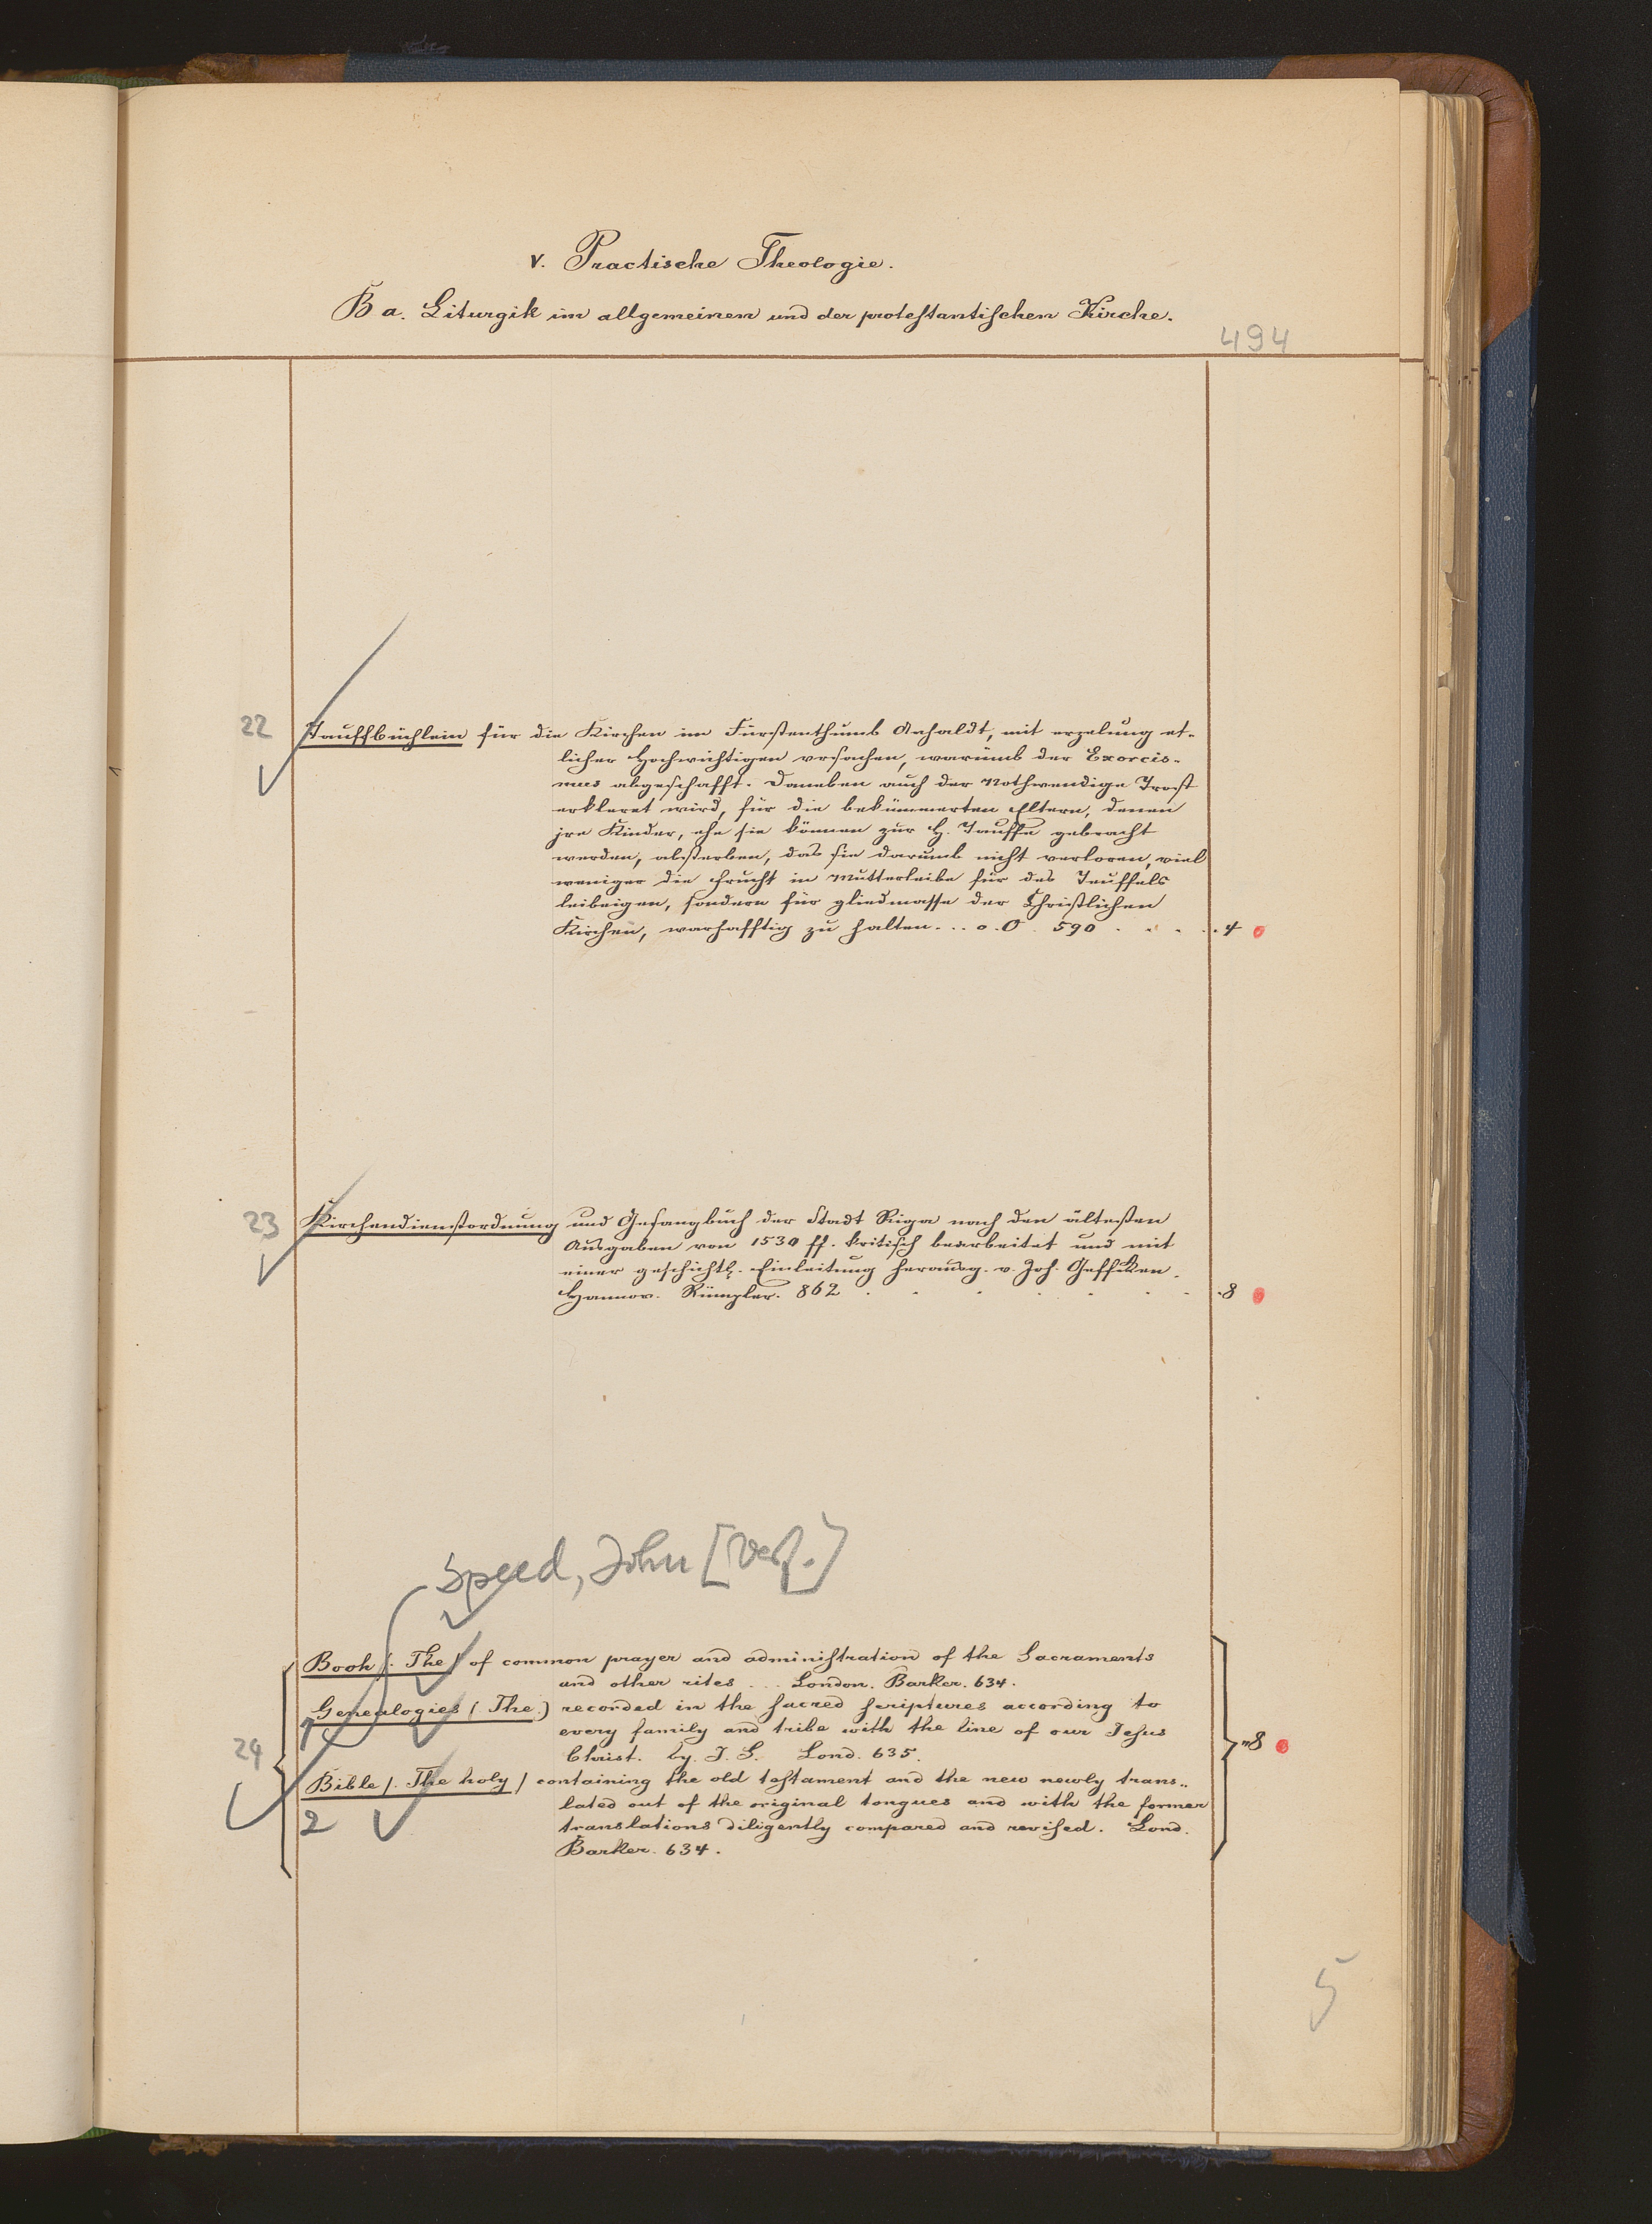 V. Practische Theologie.
B a. Liturgik im allgemeinen und der protestantischen Kirche.
494
22 Tauffbüchlein für die Kirchen im Fürstenthumb Anhaldt, mit erzelung et-
licher Hochwichtigen vrsachen, warumb der Exorcis-
mus abgeschafft. Daneben auch der Nothwendige Trost
erkleret wird, für die bekümmerten Eltern, denen
jre Kinder, ehe sie können zur H. Tauffe gebracht
werden, absterben, das sie darumb nicht verloren, viel
weniger die Frucht in Mutterleibe für des Teuffels
leibeigen, sondern für gliedmasse der Christlichen
Kirchen, warhafftig zu halten. . . o. O. 590 . . . . . 4
23 Kirchendienstordnung und Gesangbuch der Stadt Riga nach den ältesten
Ausgaben von 1530 ff. kritisch bearbeitet und mit
einer geschichtl. Einleitung herausg. v. Joh. Geffcken.
Hannov. Rümpler. 862 . . . . . . . 8
Speed, John [Verf.]
Book /. The / of common prayer and administration of the Sacraments
and other rites . . . London. Barker. 634.
Genealogies (The.) recorded in the sacred scriptures according to
1 every family and tribe with the line of our Jesus
24 Christ. by. J. S. Lond. 635. 8
Bible /. The holy / containing the old testament and the new newly trans-
2 lated out of the original tongues and with the former
translations diligently compared and revised. Lond.
Barker. 634.
5